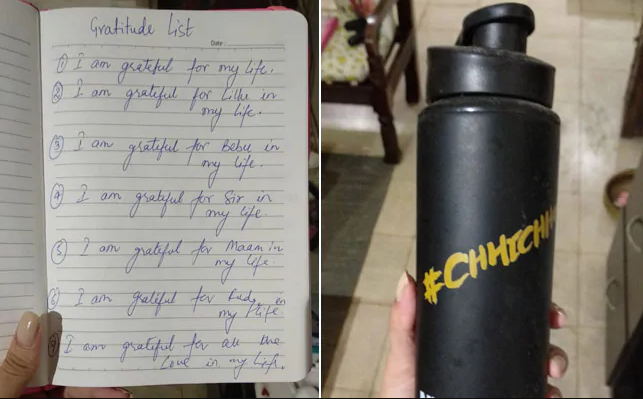 Gratitude List
Date:
① I am grateful for my life.
② I am grateful for in
my life.
③ I am grateful for Bebu in
my life.
④ I am grateful for Sir in
my life.
⑤ I am grateful for Maam in
my life.
⑥ I am grateful for in
my life.
⑦ I am grateful for all the
Love in my Life.
#CHHICHH